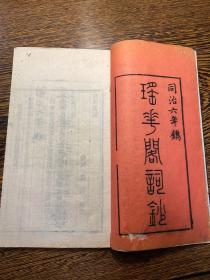 同治六年鐫
瑤華閣詞鈔